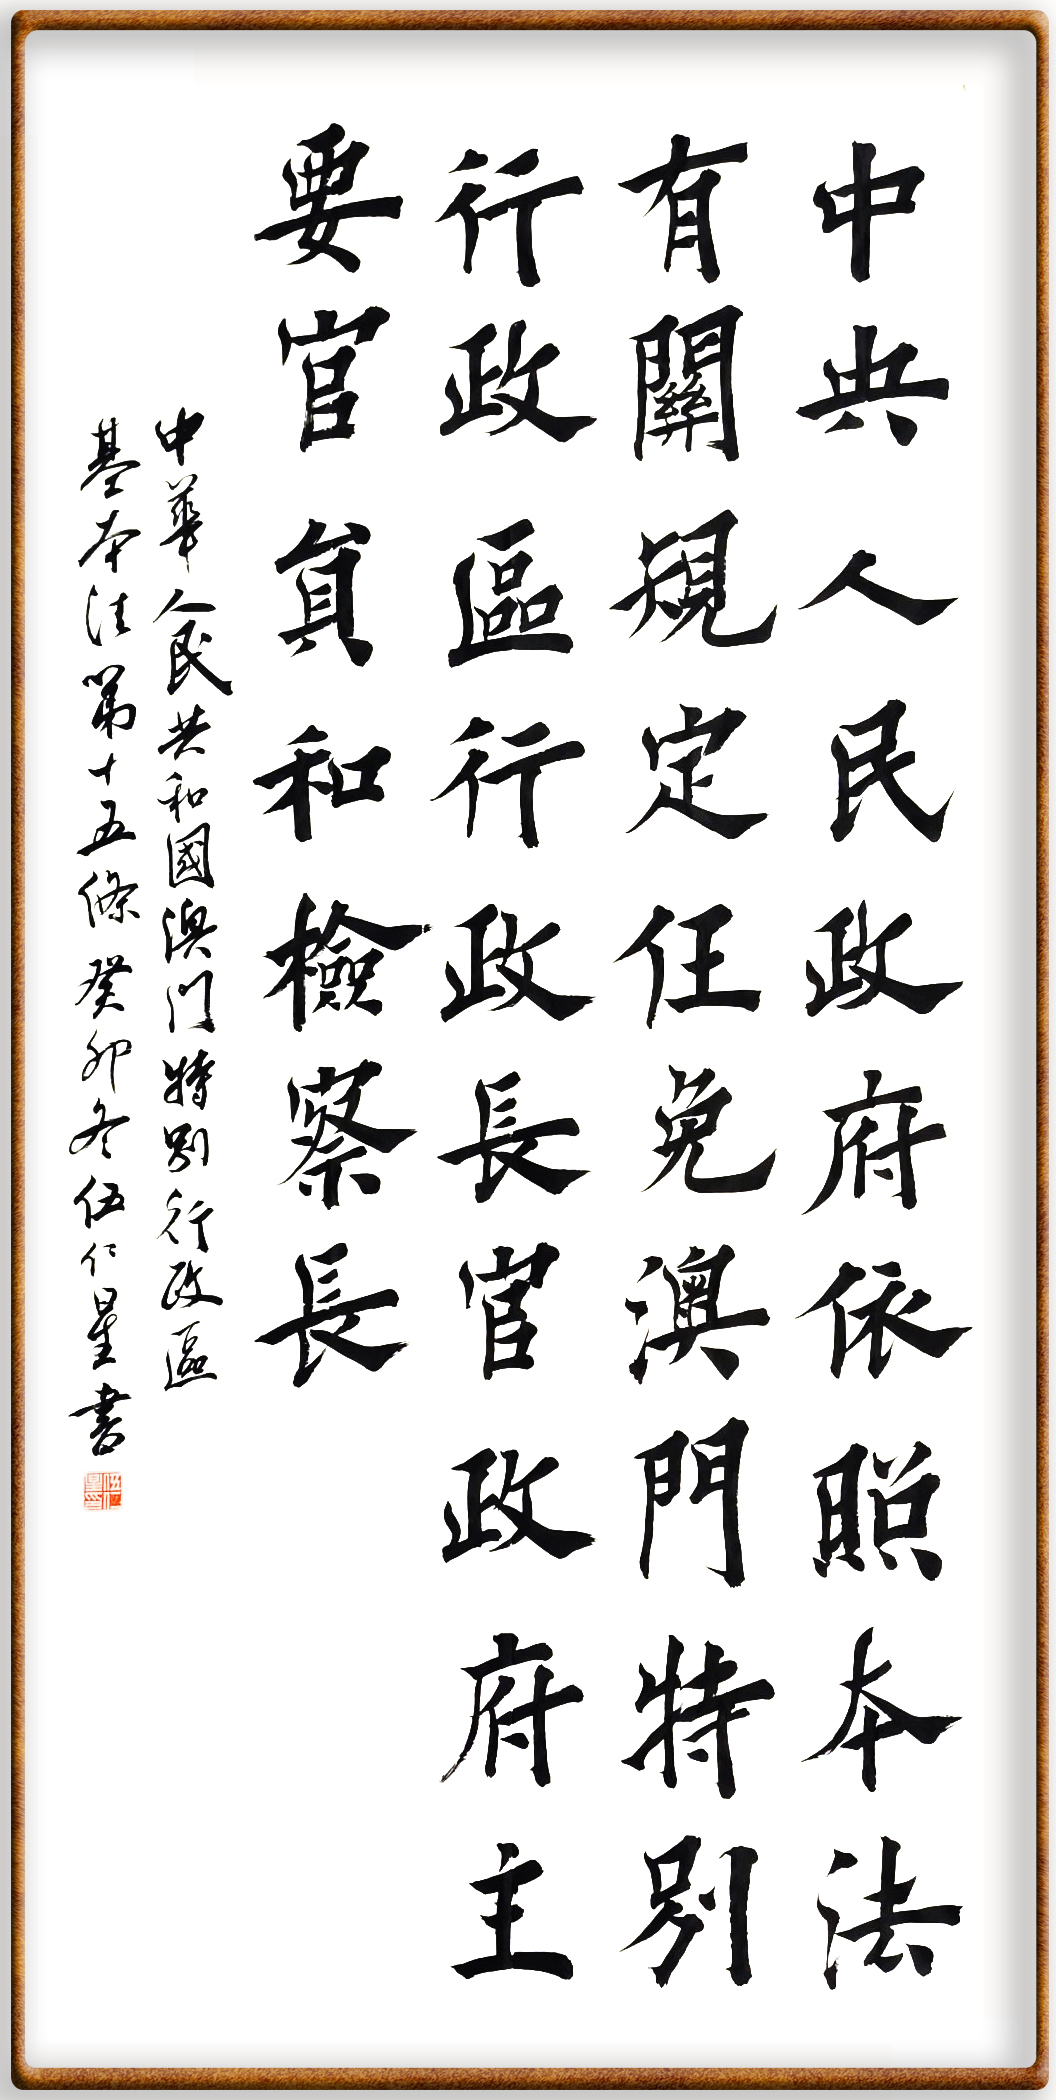 中央人民政府依照本法
有關規定任免澳門特別
行政區行政長官政府主
要官員和檢察長
中華人民共和國澳門特別行政區
基本法第十五條癸卯冬伍仁星書
伍仁星印